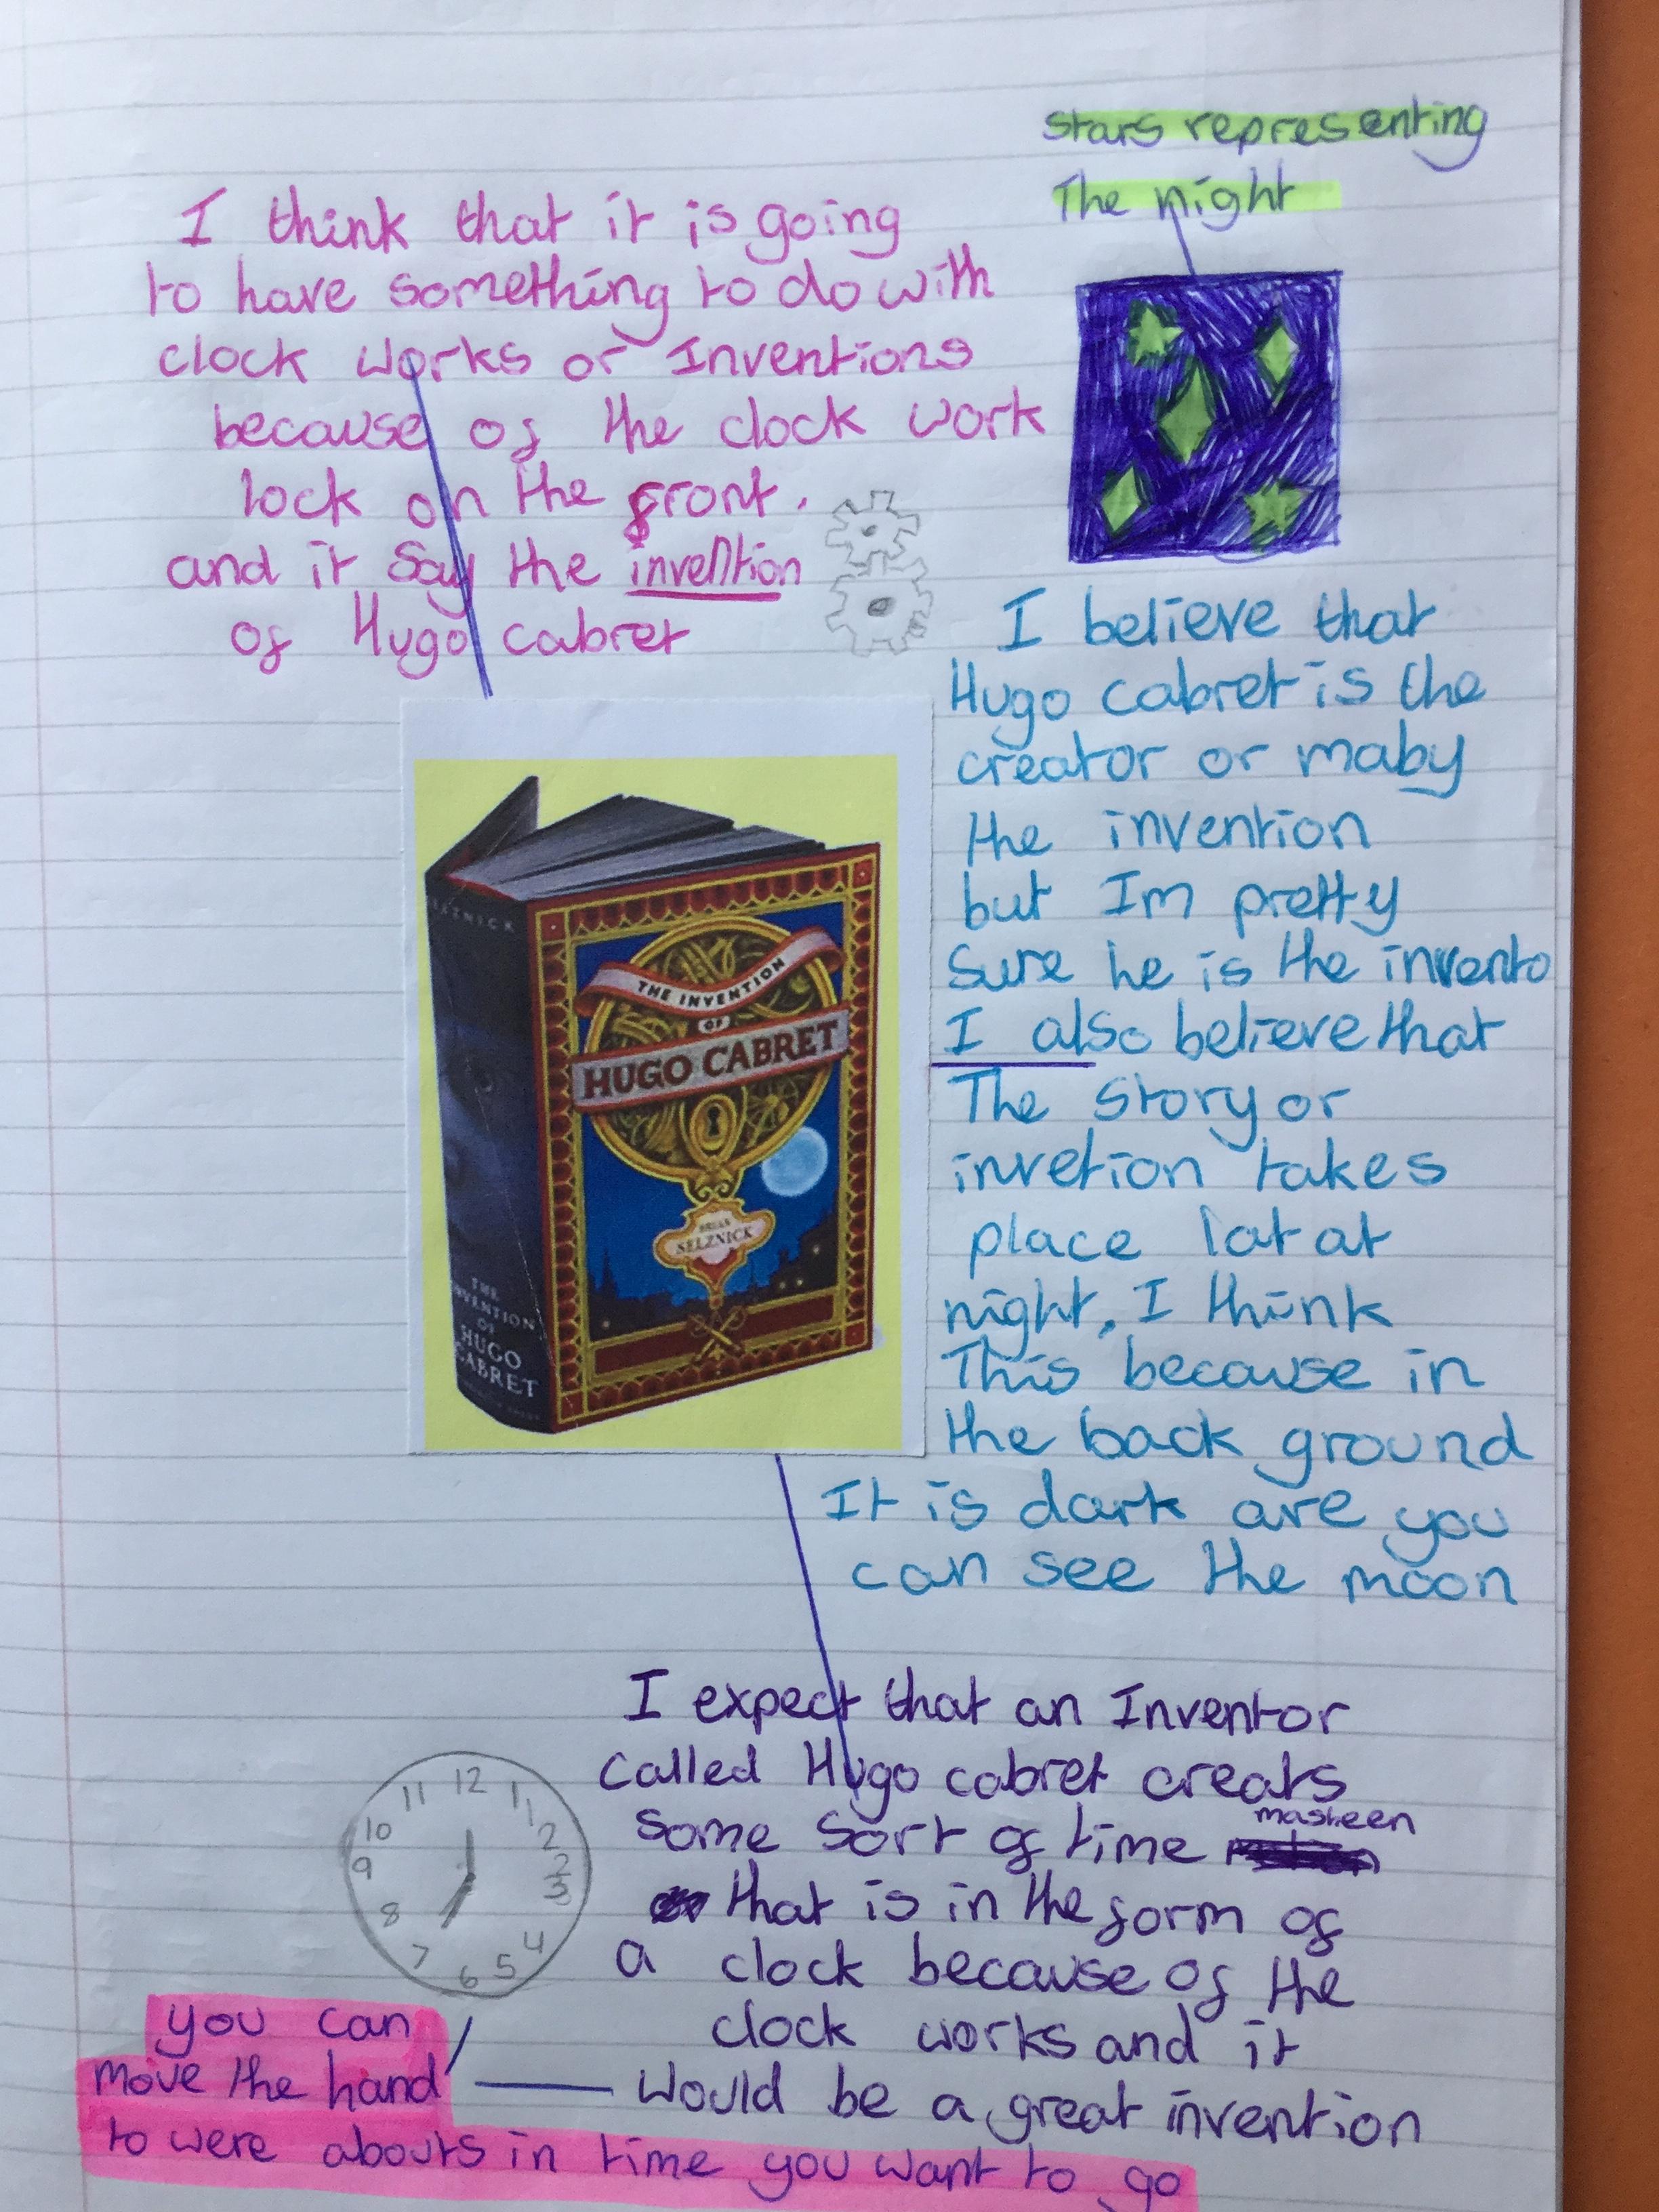 stars representing
The night
I think that it is going
to have something to do with
clock works or Inventions
because of the clock work
lock on the front.
and it say the invention
of Hugo cabret
I believe that
Hugo cabret is the
creator or maby
the invention
but Im pretty
sure he is the invento
I also believe that
The story or
invetion takes
place lat at
night. I think
This because in
the back ground
It is dark are you
can see the moon
SELZNICK
THE
INVENTION
OF
HUGO
CABRET
THE INVENTION
OF
HUGO CABRET
BRIAN
SELZNICK
I expect that an Inventor
called Hugo cabret creats
some sort of time masheen
that is in the form of
a clock because of the
clock works and it
would be a great invention
12
11
1
10
2
9
3
8
4
7
5
6
you can
move the hand
to were abouts in time you want to go